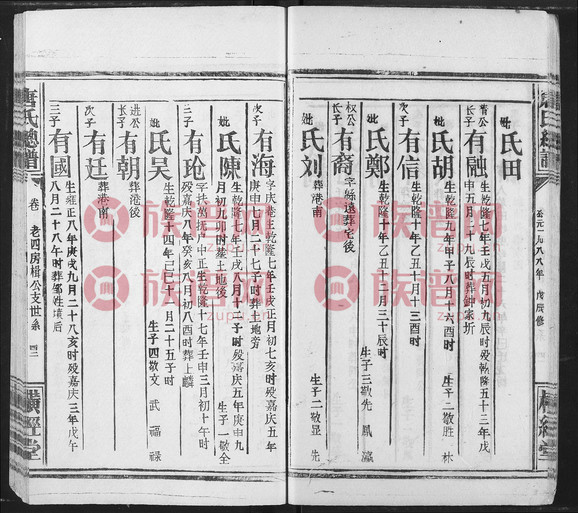 公元一九八八年 戊辰修
妣 氏田
清公長子 有融 生乾隆七年壬戌五月初九辰時殁乾隆五十三年戊申五月二十九辰時葬鐘家圻
妣 氏胡 生乾隆九年甲子八月二十六酉時 生子二敬胜 林
次子 有信 生乾隆十年乙丑十月十三酉時
妣 氏鄭 生乾隆十年乙丑十二月三十辰時 生子三敬先 鳳 瀛
权公長子 有裔 字縣遠葬宅後
妣 氏刘 葬港南 生子二敬显 先
次子 有海 字庆菴生乾隆七年壬戌正月初七亥時殁嘉庆五年庚申七月二十七子時葬土地旁
妣 氏陳 生乾隆七年壬戌八月十二子時殁嘉庆五年庚申九月初九卯時葬土地後 生子一敬全
三子 有玱 字扶萬抚户中正生乾隆十七年壬申三月初十午時殁嘉庆八年癸亥八月初八酉時葬上麟
妣 氏吴 生乾隆十四年己巳十二月二十五子時 生子四敬文 武 福 禄
进公長子 有朝 葬港後
次子 有廷 葬港南
三子 有國 生雍正八年庚戌九月二十八亥時殁嘉庆三年戊午八月二十八午時葬邹姓墳后
唐氏總譜
卷 老四房楫公支世系 四二
橫經堂
族譜网
zupu.cn